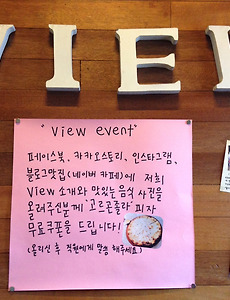 VIEW
"View event"
페이스북, 카카오스토리, 인스타그램,
블로그맛집(네이버 카페)에 저희
View 소개와 맛있는 음식 사진을
올려주신분께 '고르곤졸라' 피자
무료쿠폰을 드립니다!
(올리신 후 직원에게 말씀 해주세요)